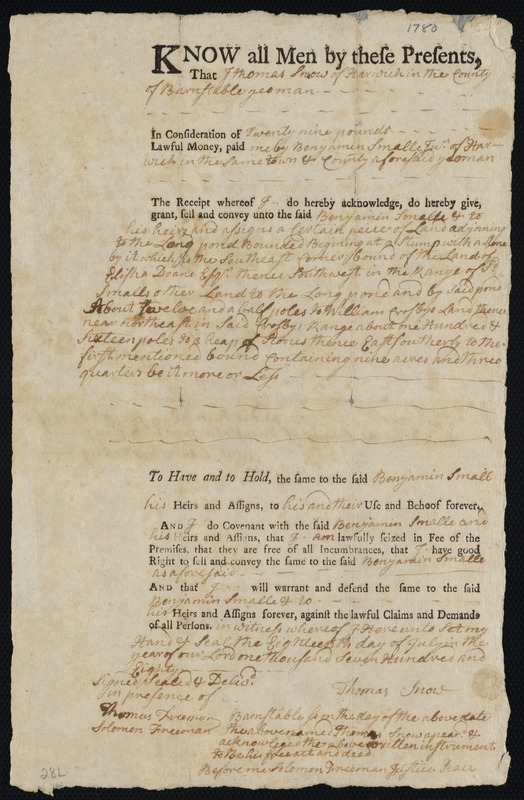 1780
KNOW all Men by theſe Preſents,
That I Thomas Snow of Harwich in the County
of Barnstable yeoman
In Conſideration of Twenty nine pounds
Lawful Money, paid me by Benjamin Smalle Jur. of Har-
wich in the same town & County aforesaid yeoman
The Receipt whereof I do hereby acknowledge, do hereby give,
grant, ſell and convey unto the ſaid Benjamin Smalle & to
his heirs and assigns a Certain peice of Land adjoyning
to the Long pond Bounded Begining at a Stump with a stone
by it which is the Southeast corner bound of the Land of
Elisha Doane Esqr. thence Southwest in the Range of Sd.
Smalls other Land to the Long pond and by Said pond
About twelve and a half poles to William Crosbys Land thence
near northeast in Said Crosbys Range about one Hundred &
Sixteen poles to a heap of Stones thence East Southerly to the
first mentioned bound Containing nine acres and three
quarters be it more or Less
To Have and to Hold, the ſame to the ſaid Benjamin Small
his Heirs and Aſſigns, to his and their Uſe and Behoof forever,
AND I do Covenant with the ſaid Benjamin Smalle and
his Heirs and Aſſigns, that I am lawfully ſeized in Fee of the
Premiſes, that they are free of all Incumbrances, that I have good
Right to ſell and convey the ſame to the ſaid Benjamin Smalle
as aforesaid
AND that I will warrant and defend the ſame to the ſaid
Benjamin Smalle & to
his Heirs and Aſſigns forever, againſt the lawful Claims and Demands
of all Perſons. in witness whereof I Have unto Set my
Hand & Seal the Eighteenth day of July in the
year of our Lord one thousand Seven Hundred and
Eighty
Signed, Sealed & Delivd.
in presence of
Thomas Snow
Thomas Freeman
Solomon Freeman
Barnstable ss on the day of the above date
the above named Thomas Snow appeard. &
acknowleged the above written instrument
to Be his free act and deed
Before me Solomon Freeman Justice Peace
28L